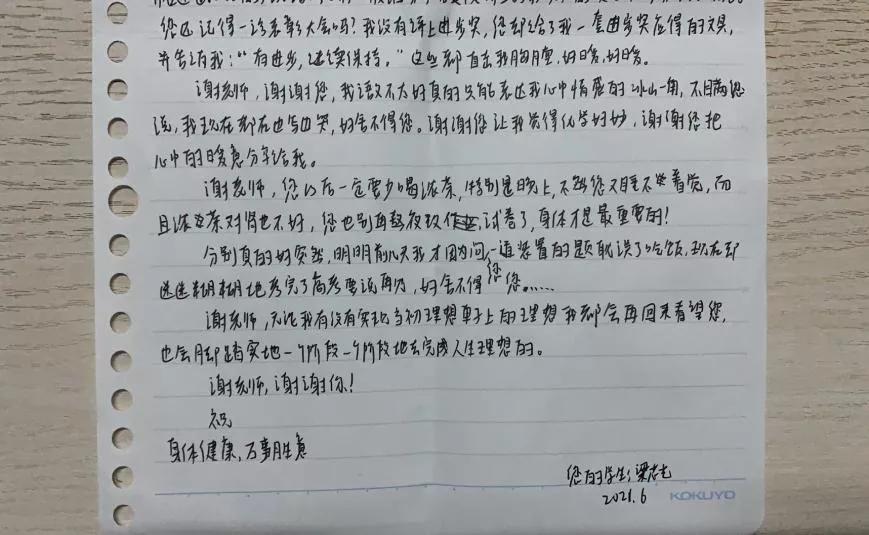 您还记得一诊表彰大会吗?我没有评上进步奖,您却给了我一套进步奖应得的文具,
并告诉我:“有进步,继续保持。”这些都直击我胸膛,好暖,好暖。
谢老师,谢谢您,我语文不太好真的只能表达我心中情感的冰山一角,不瞒您
说,我现在都在边写边哭,好舍不得您。谢谢您让我觉得化学好妙,谢谢您把
心中的暖意分享给我。
谢老师,您以后一定要少喝浓茶,特别是晚上,不然您又睡不着觉,而
且浓茶对胃也不好,您也别再熬夜改试卷了,身体才是最重要的!
分别真的好突然,明明前几天我才因为问一道装置的题耽误了吃饭,现在却
迷迷糊糊地考完了高考要说再见,好舍不得您 您……
谢老师,无论我有没有实现当初理想单子上的理想我都会再回来看望您,
也会脚踏实地一个阶段一个阶段地去完成人生理想的。
谢老师,谢谢你!
祝
身体健康,万事胜意
您的学生:梁志
2021.6
KOKUYO